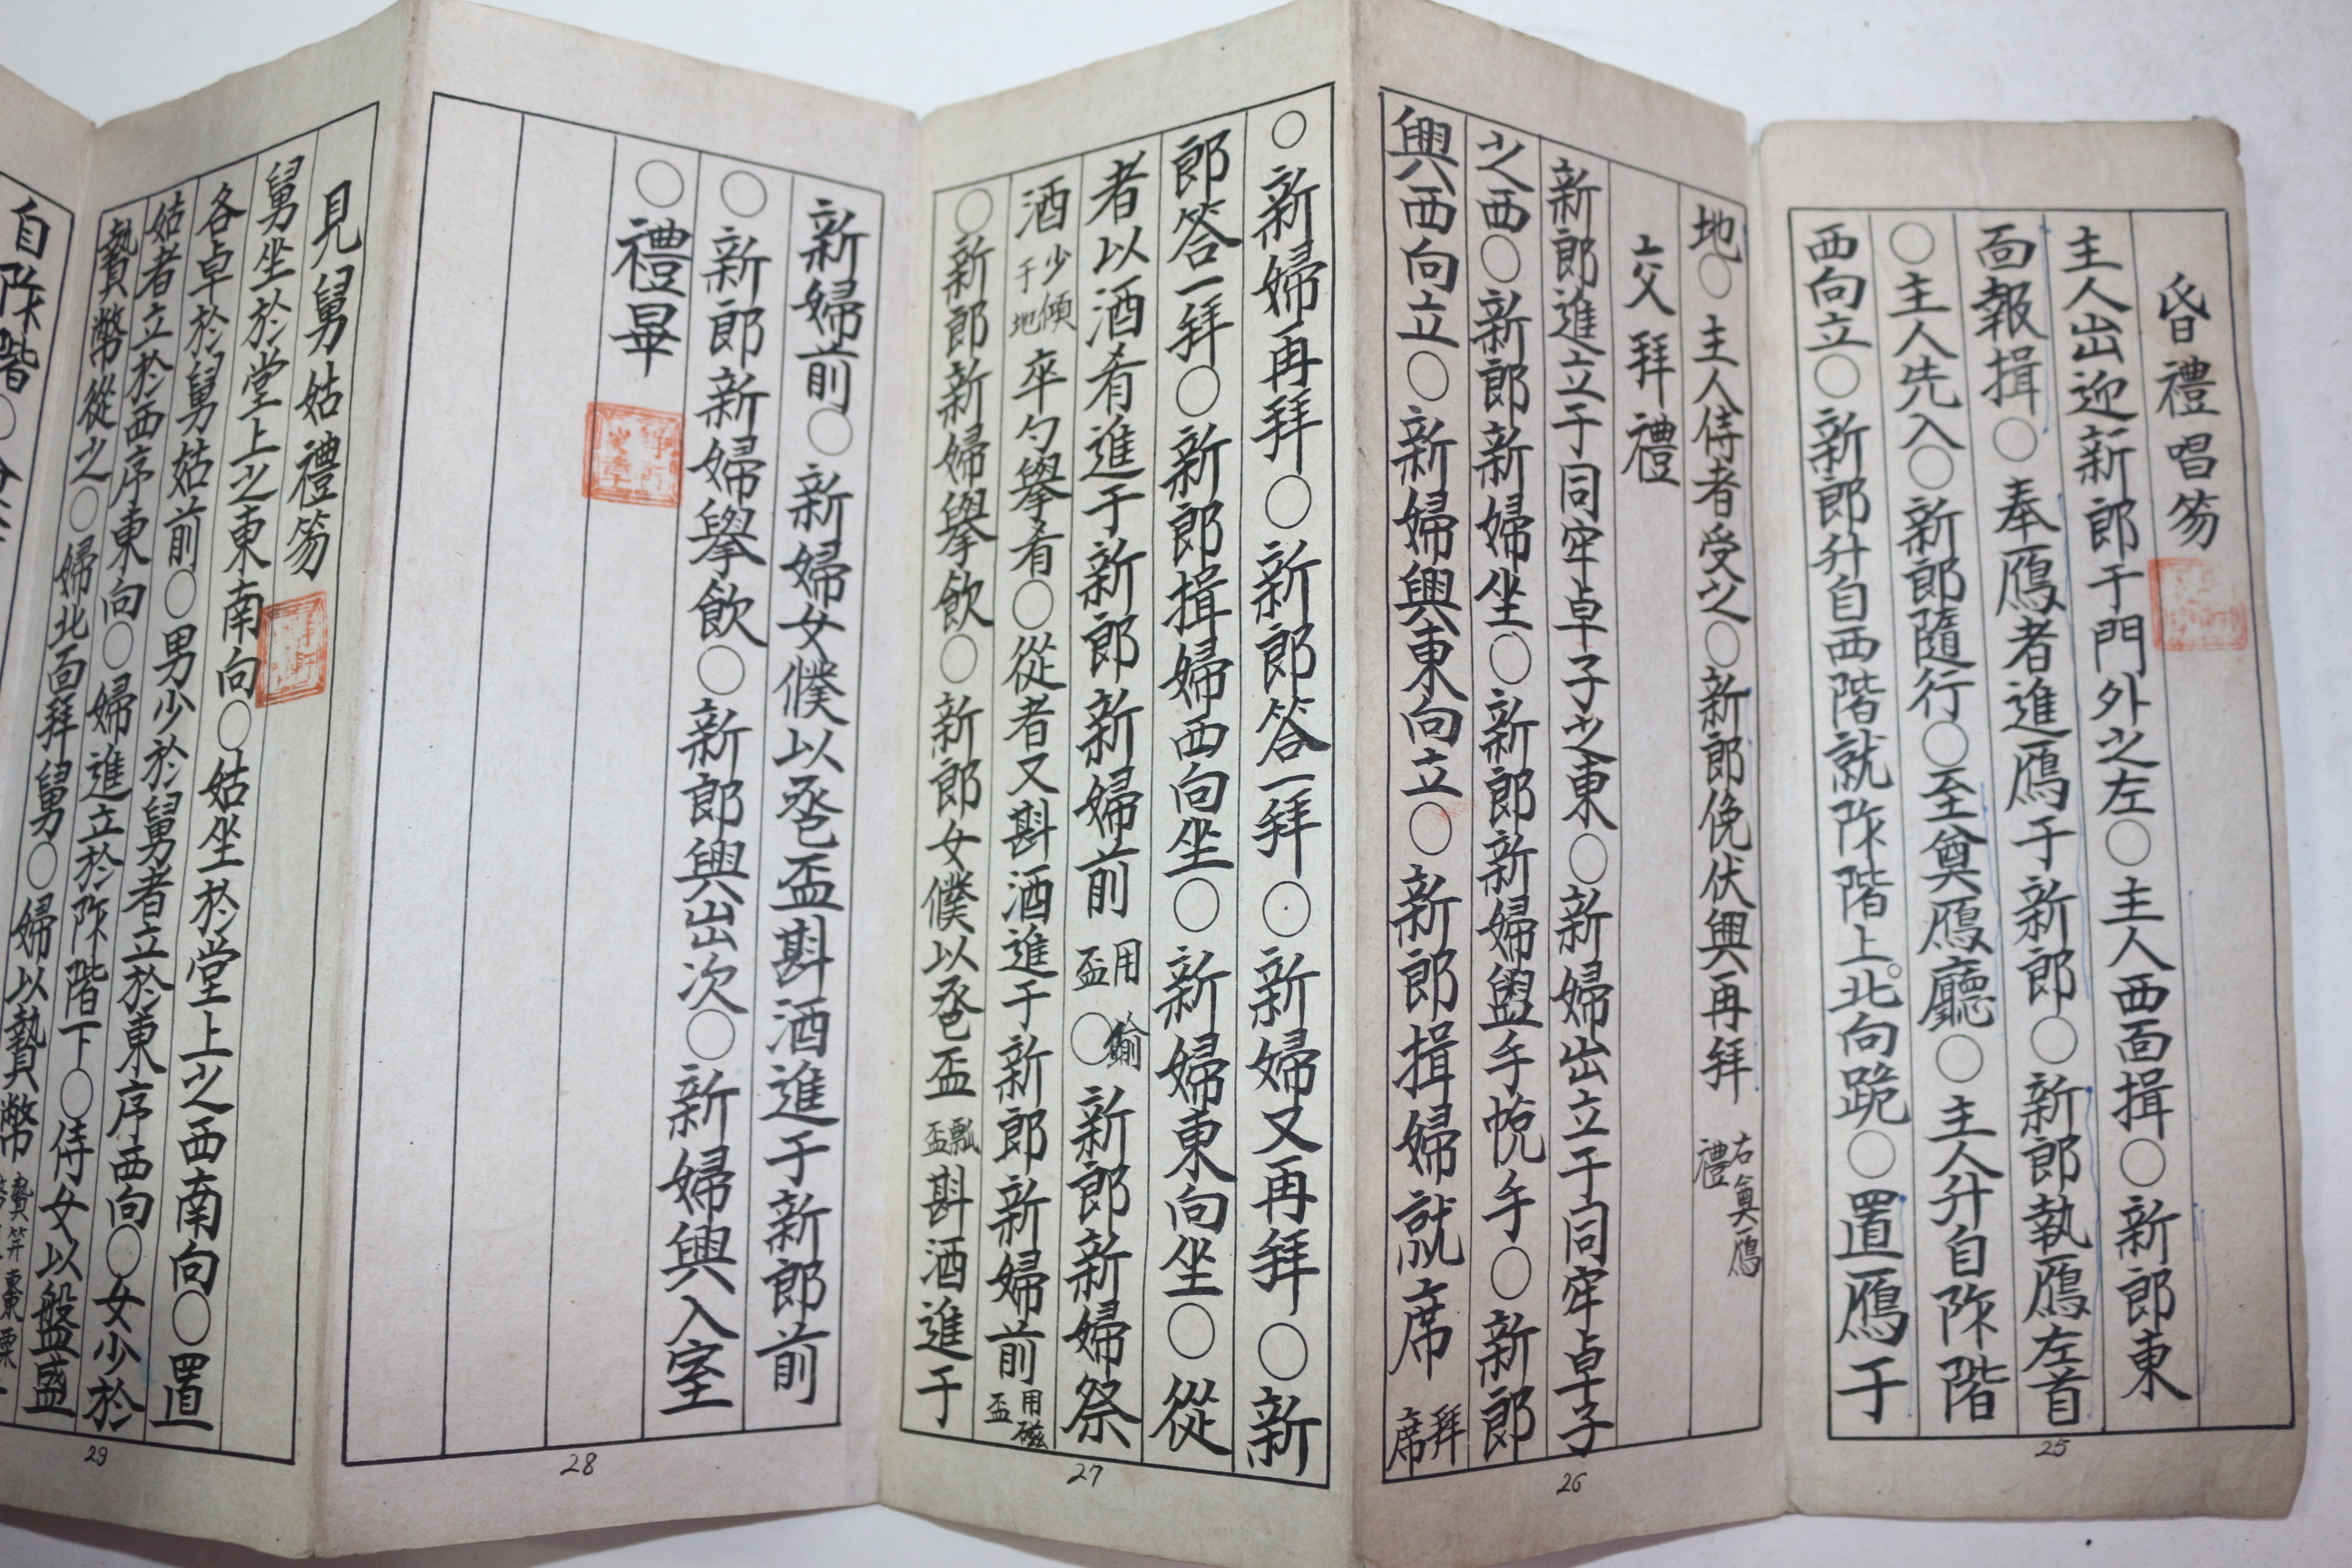 昏禮唱笏
主人出迎新郎于門外之左○主人西面揖○新郎東
面報揖○奉鴈者進鴈于新郎○新郎執鴈左首
○主人先入○新郎隨行○至奠鴈廳○主人升自阼階
西向立○新郎升自西階就阼階上北向跪○置鴈于
25
地○主人侍者受之○新郎俛伏興再拜 右奠鴈禮
交拜禮
新郎進立于同牢卓子之東○新婦出立于同牢卓子
之西○新郎新婦坐○新郎新婦盥手帨手○新郎
興西向立○新婦興東向立○新郎揖婦就席 拜席
26
○新婦再拜○新郎答一拜○新婦又再拜○新
郎答一拜○新郎揖婦西向坐○新婦東向坐○從
者以酒肴進于新郎新婦前 用鍮盃○新郎新婦祭
酒 少傾于地 卒勺擧肴○從者又斟酒進于新郎新婦前 用磁盃
○新郎新婦擧飮○新郎女僕以巹盃 瓢盃 斟酒進于
27
新婦前○新婦女僕以巹盃斟酒進于新郎前
○新郎新婦擧飮○新郎興出次○新婦興入室
○禮畢
28
見舅姑禮笏
舅坐於堂上之東南向○姑坐於堂上之西南向○置
各卓於舅姑前○男少於舅者立於東序西向○女少於
姑者立於西序東向○婦進立於阼階下○侍女以盤盛
贄幣從之○婦北面拜舅○婦以贄幣 贄笲棗栗
29
自阼階○